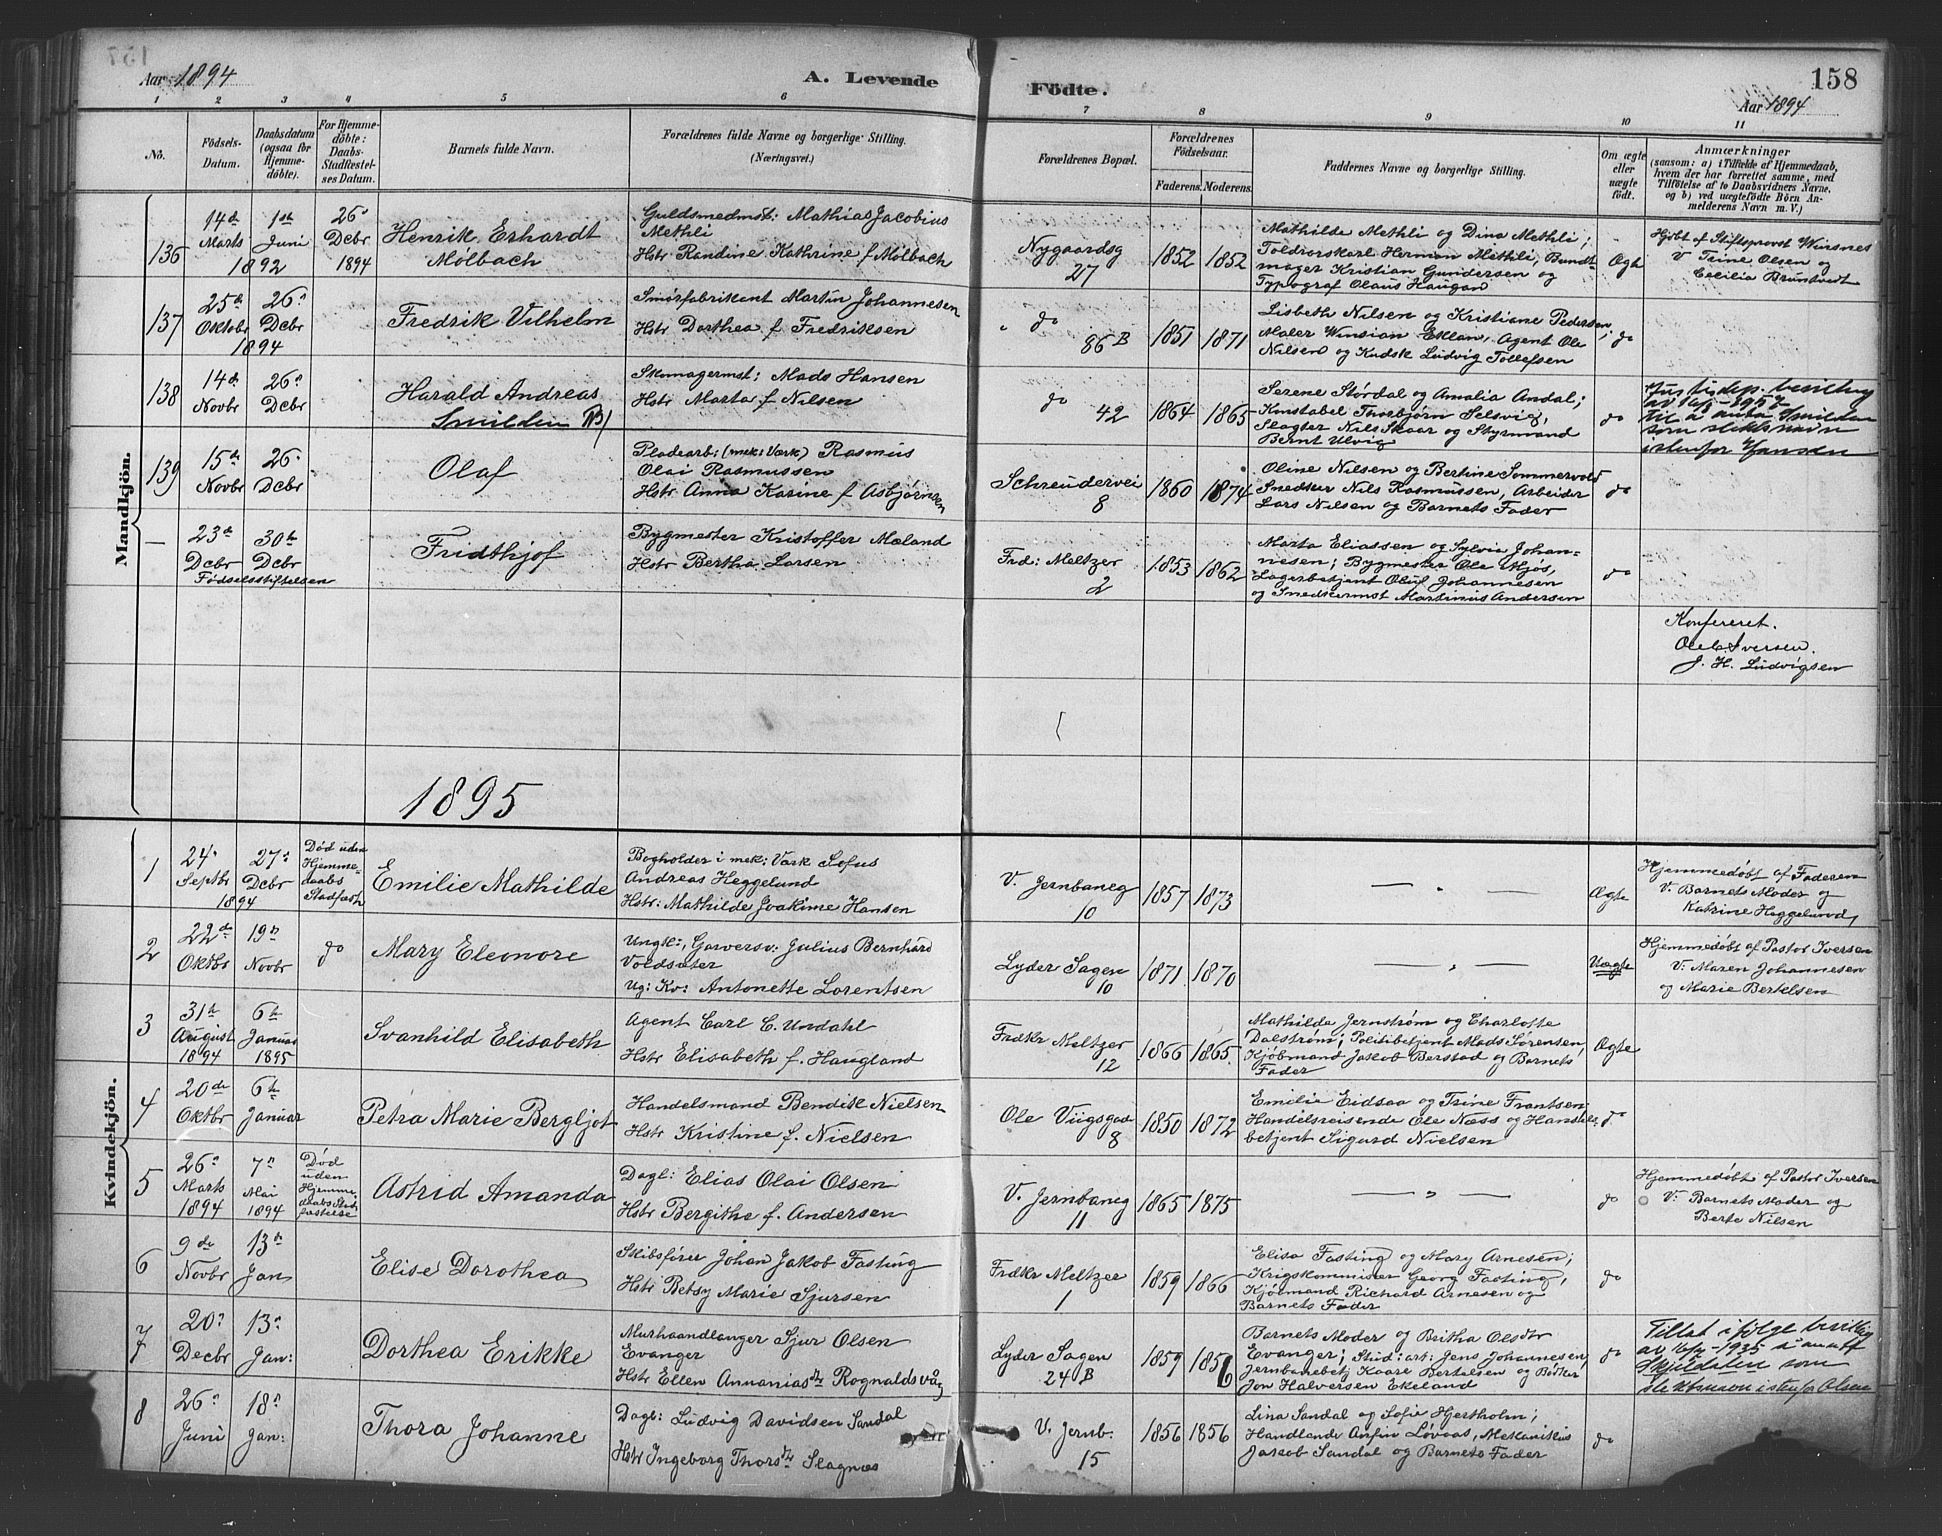 Aar 1894
A. Levende
Födte.
158
Aar 1894
1 2 3 4 5 6 7 8 9 10 11
No.
Födsels-
Datum.
Daabsdatum
(ogsaa for
Hjemme-
döbte).
For Hjemme-
döbte:
Daabs-
Stadfæstel-
ses Datum.
Barnets fulde Navn.
Forældrenes fulde Navne og borgerlige Stilling.
(Næringsvei.)
Forældrenes Bopæl.
Forældrenes
Födselsaar.
Faderens. Moderens.
Faddernes Navne og borgerlige Stilling.
Om ægte
eller
uægte
födt.
Anmærkninger
(saasom: a) i Tilfælde af Hjemmedaab,
hvem der har forrettet samme, med
Tilföielse af to Daabsvidners Navne,
og b) ved uægtefödte Börn An-
melderens Navn m. V.)
Mandkjön.
136
14de
Marts
1892
1ste
Juni
26
Dcbr
1894
Henrik Erhardt
Mölbach
Guldsmedmst: Mathias Jacobius
Methli
Hstr Randine Kathrine f Mölbach
Nygaardsg
27
1852 1852
Mathilde Methli og Dina Methli;
Toldrorskarl Herman Methli, Bundt-
mager Kristian Gundersen og
Typograf Olaus Haugan
Ægte
Hjdbt af Stiftsprovst Wensnes
V Trine Olsen og
Cecilia Bruntvedt
137
25de
Oktobr
1894
26
Dcbr
Fredrik Vilhelm
Smørfabrikant Martin Johannesen
Hstr Dorthea f Fredriksen
" do
86 B
1851 1871
Lisbeth Nilsen og Kristiane Pedersen;
Maler Winsian Eklan, Agent Ole
Nilsen og Kudsk Ludvig Tollefsen
do
138
14de
Novbr
26
Dcbr
Harald Andreas
Smilden B)
Skomagermst: Mads Hansen
Hstr Marta f Nilsen
do
42
1864 1865
Serene Stördal og Amalia Andal;
Konstabel Thorbjörn Selsvig,
Slagter Nils Skaar og Styrmand
Bernt Ulvig
do
Justisdep. bevilling
av 16/5-1957
til å anta Smilden
som slektsnavn
istenfor Hansen
139
15de
Novbr
26
Dcbr
Olaf
Pladearb: (mek: Værk) Rasmus
Olai Rasmussen
Hstr Anna Karine f Asbjörnsen
Schreudervei
8
1860 1874
Oline Nilsen og Bertine Sommervold
Snedker Nils Rasmussen, Arbeider
Lars Nilsen og Barnets Fader
do
—
23de
Dcbr
30te
Dcbr
Födselsstiftelsen
Fridthjof
Bygmester Kristoffer Mæland
Hstr Bertha Larsen
Frd: Meltzer
2
1853 1862
Marta Eliassen og Sylvia Johan-
nesen; Bygmester Ole Mjøs,
Lagerbetjent Oluf Johannesen
og Snedkermst Martinius Andersen
do
Konfereret.
Ole C. Iversen.
J. H. Ludvigsen
1895
Kvindekjön.
1
24
Septbr
1894
27
Dcbr
Död uden
Hjemme-
daabs
Stadfæst
Emilie Mathilde
Bogholder i mek: Værk Sofus
Andreas Heggelund
Hstr: Mathilde Joakime Hansen
V. Jernbaneg
10
1857 1873
— " —
Ægte
Hjemmedøbt af Faderen
V. Barnets Moder og
Katrine Heggelund,
2
22de
Oktbr
19n
Novbr
do
Mary Eleonore
Ungk:, Garversv: Julius Bernhard
Voldsæter
Ug: Kv: Antonette Lorentsen
Lyder Sagen
10
1871 1870
— " —
Uægte
Hjemmedøbt af Pastor Iversen
V: Maren Johannesen
og Marie Bertelsen
3
31te
August
1894
6te
Januar
1895
Svanhild Elisabeth
Agent Carl C. Undahl
Hstr Elisabeth f. Haugland
Frdkr Meltzer
12
1866 1865
Mathilde Jernstrøm og Charlotte
Dalstrøm; Politibetjent Mads Sørensen,
Kjöbmand Jakob Berstad og Barnets
Fader
Ægte
4
20de
Oktbr
6te
Januar
Petra Marie Bergljot
Handelsmand Bendik Nielsen
Hstr Kristine f. Nielsen
Ole Viigsgad
8
1850 1872
Emilie Eidsaa og Trine Frantsen
Handelsreisende Ole Næss og Handels-
betjent Sigurd Nielsen
do
5
26
Marts
1894
7n
Mai
1894
Död
uden
Hjemme-
daabs Stad-
fæstelse
Astrid Amanda
Dagl: Elias Olai Olsen
Hstr Bergithe f. Andersen
V. Jernbaneg
11
1865 1875
— " —
do
Hjemmedøbt af Pastor Iversen
V. Barnets Moder og
Berte Nilsen
6
9de
Novbr
13de
Jan
Elise Dorothea
Skibsfører Johan Jakob Fasting
Hstr Betsy Marie Sjursen
Frdkr Meltzer
1
1859 1866
Elisa Fasting og Mary Arnesen;
Krigskommisær Georg Fasting,
Kjøbmand Richard Arnesen og
Barnets Fader
do
7
20
Decbr
13
Jan:
Dorthea Erikke
Murhaandlanger Sjur Olsen
Evanger
Hstr Ellen Annaniasdtr Rognaldsvåg
Lyder Sagen
24 B
1859 1856
Barnets Moder og Britha Olsdtr
Evanger; Stud: art: Jens Johannesen,
Jernbanebetj Kaare Bertelsen og Bödker
Jon Halversen Ekeland
do
Tillat i følge bevilling
av 16/2-1935 å anta
Skjeldalen som
slektsnavn istenfor Olsen
8
26
Juni
18
Jan:
Thora Johanne
Dagl: Ludvig Davidsen Sandal
Hstr Ingeborg Thorsdtr Slagnæs
V. Jernb.
15
1856 1856
Lina Sandal og Sofie Hjertholm;
Handlende Anfin Løvaas, Mekanikus
Jakob Sandal og Barnets Fader
do